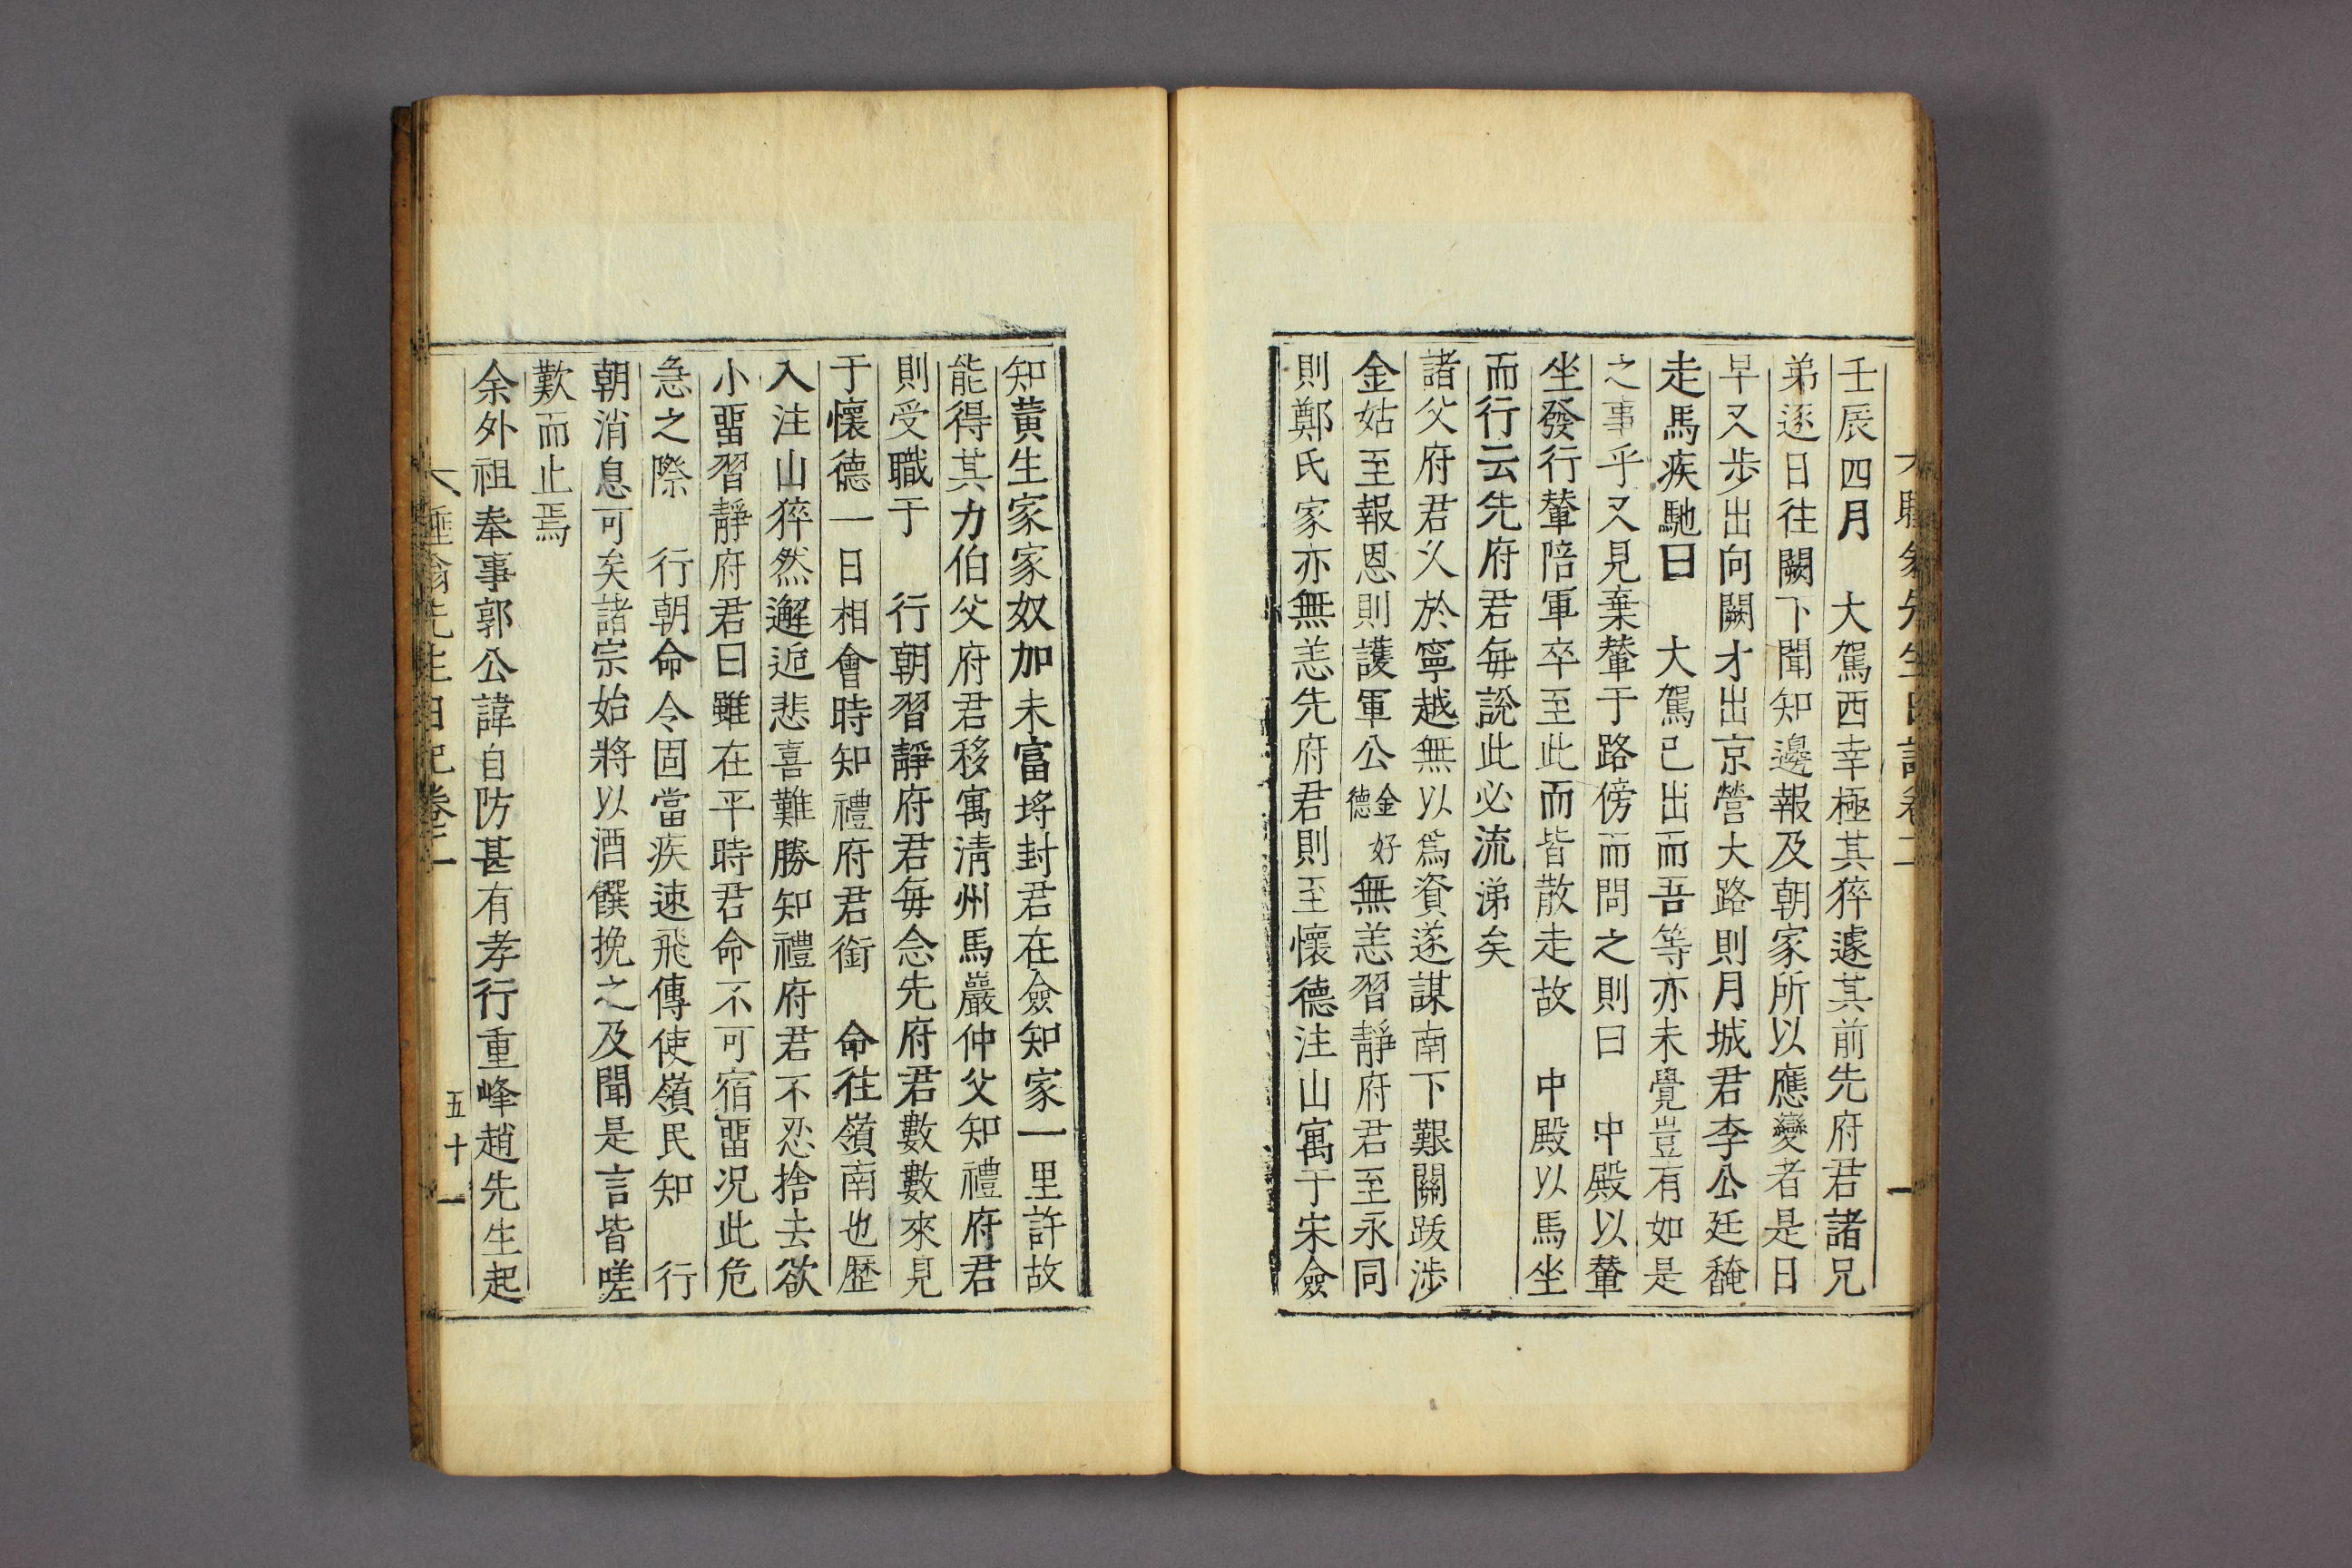 壬辰四月 大駕西幸極其猝遽其前先府君諸兄
弟逐日往闕下聞知邊報及朝家所以應變者是日
早又步出向闕才出京營大路則月城君李公廷馣
走馬疾馳曰 大駕已出而吾等亦未覺豈有如是
之事乎又見棄輦于路傍而問之則曰 中殿以輦
坐發行輦陪軍卒至此而皆散走故 中殿以馬坐
而行云先府君每說此必流涕矣
諸父府君以於寧越無以爲資遂謀南下艱關跋涉
金姑至報恩則護軍公金好德無恙習靜府君至永同
則鄭氏家亦無恙先府君則至懷德注山寓于宋僉
知黃生家家奴加未富埓封君在僉知家一里許故
能得其力伯父府君移寓淸州馬巖仲父知禮府君
則受職于 行朝習靜府君每念先府君數數來見
于懷德一日相會時知禮府君銜 命往嶺南也歷
入注山猝然邂逅悲喜難勝知禮府君不忍捨去欲
小畱習靜府君曰雖在平時君命不可宿畱況此危
急之際 行朝命令固當疾速飛傳使嶺民知 行
朝消息可矣諸宗始將以酒饌挽之及聞是言皆嗟
歎而止焉
余外祖奉事郭公諱自防甚有孝行重峰趙先生起
先生日記卷二
五十一